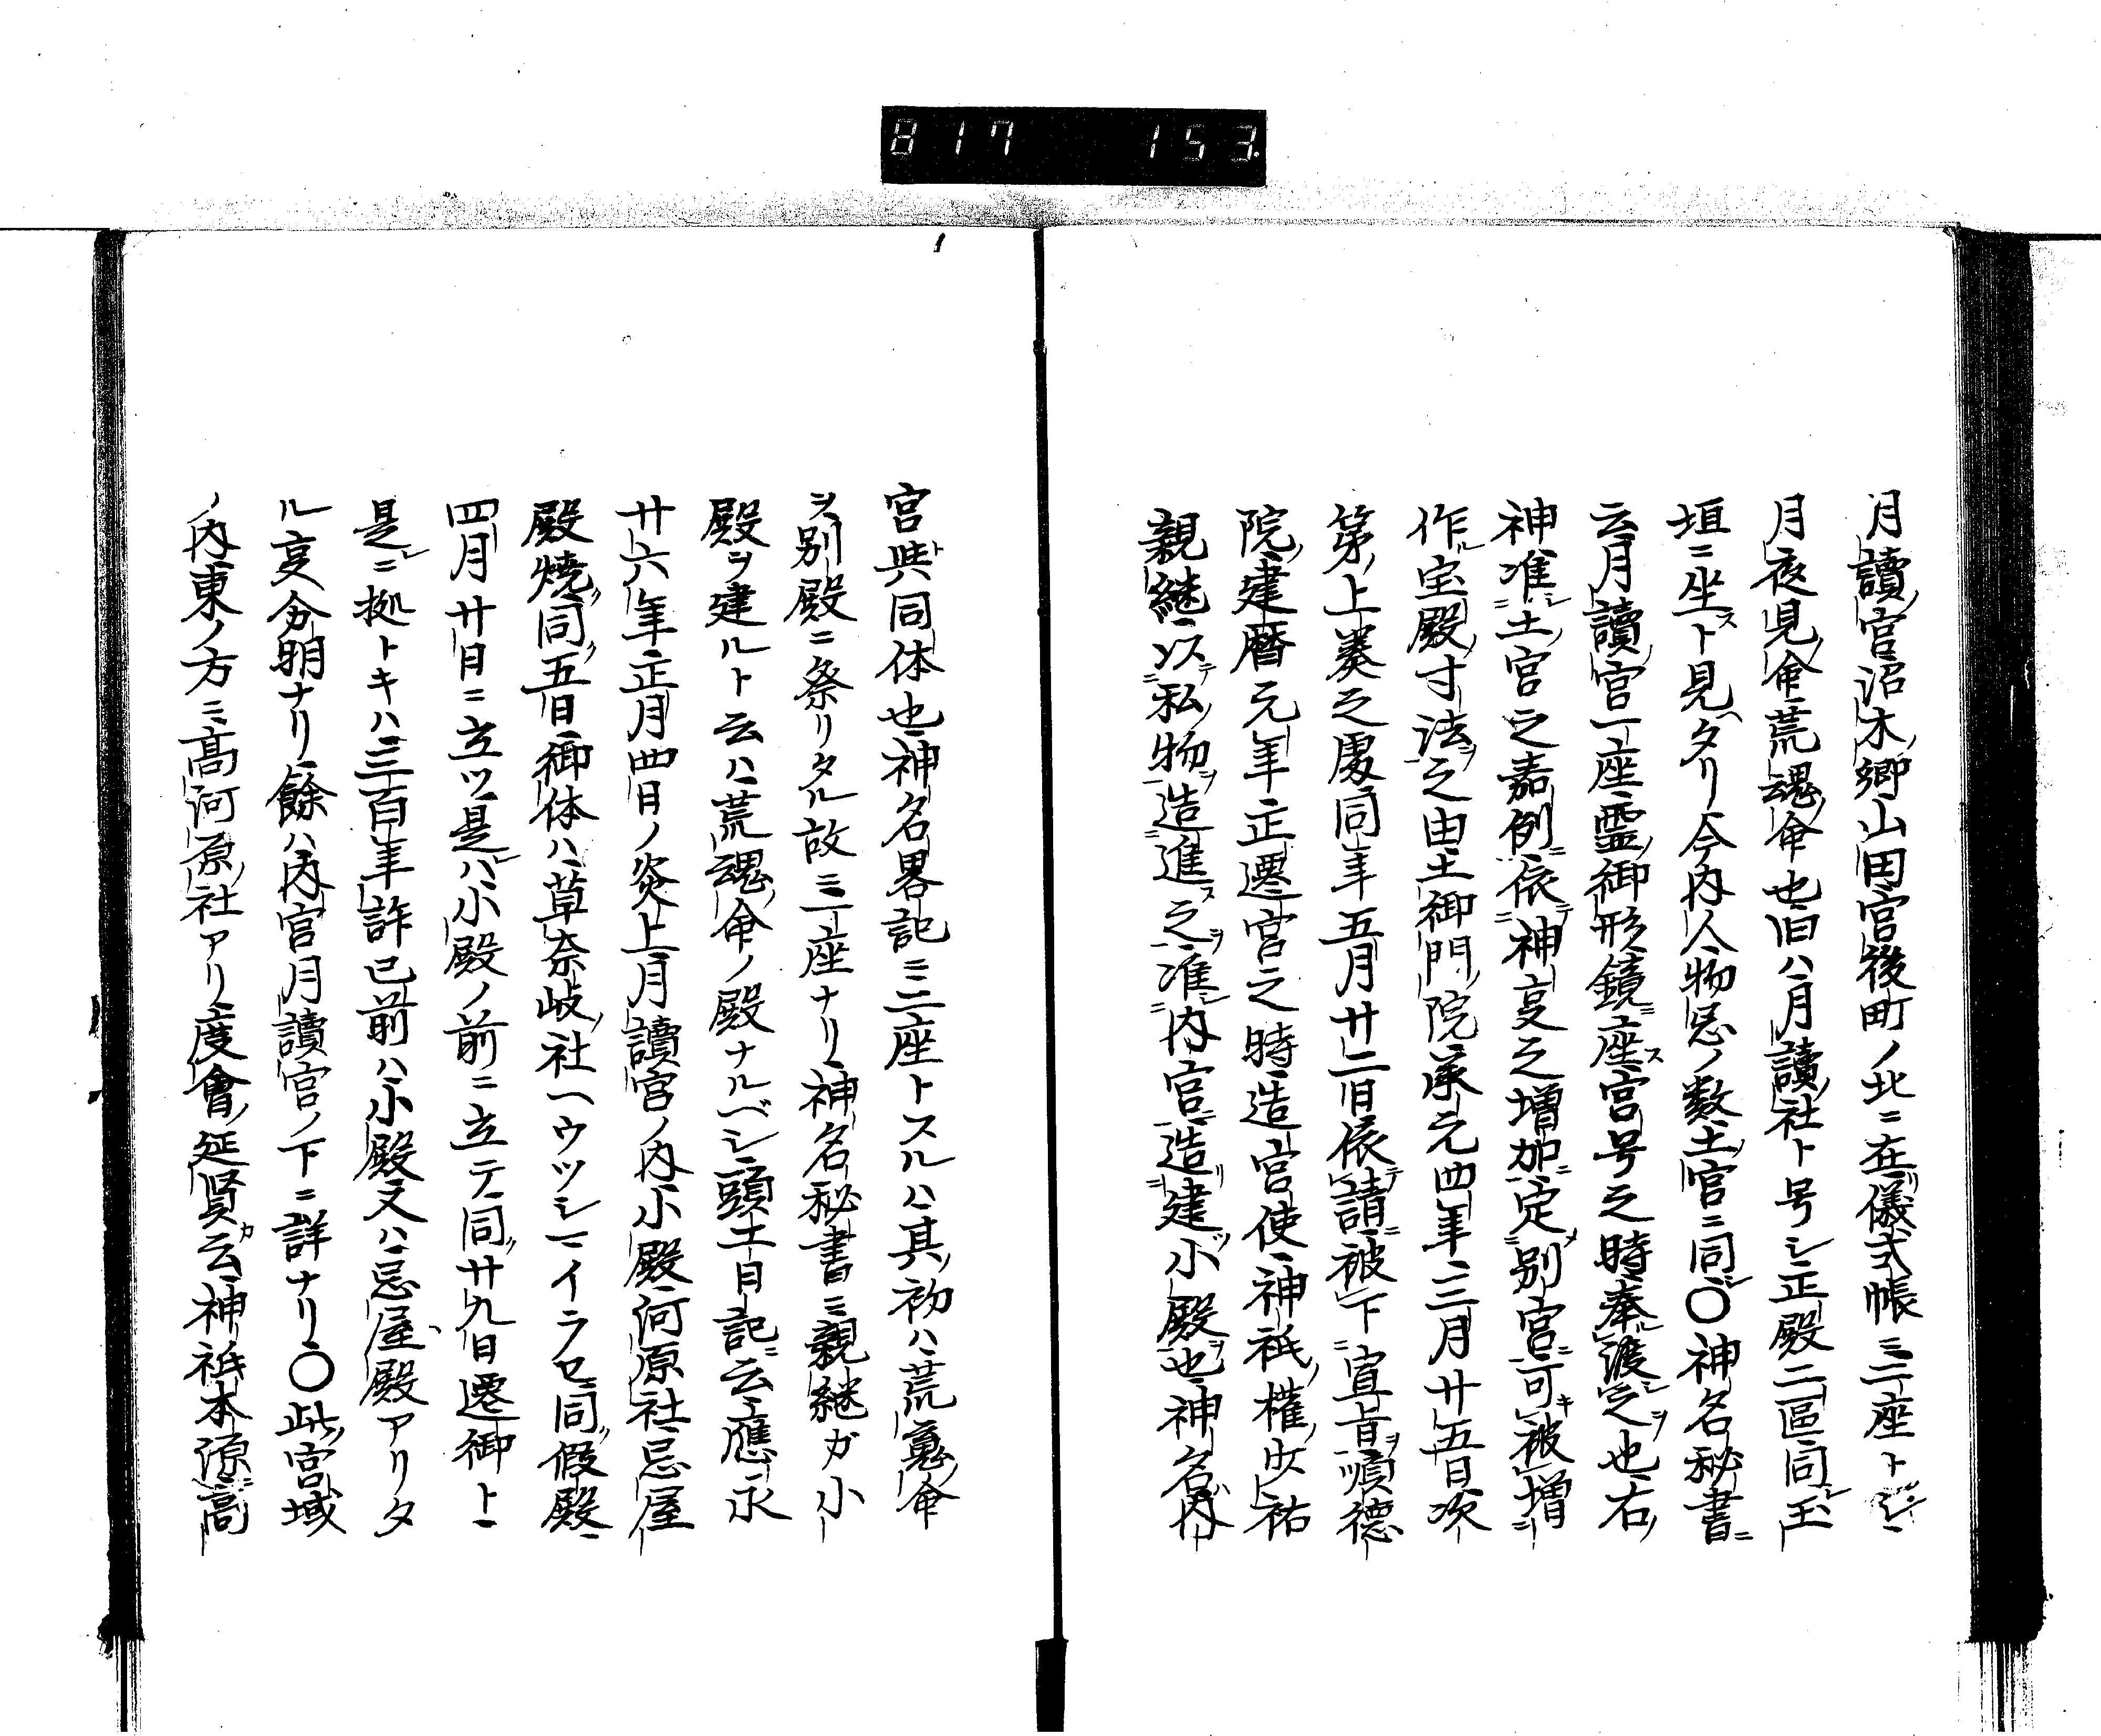 817 153
月讀宮沼木郷山田宮後町ノ北ニ在儀式帳ニ二座トシ
月夜見命荒魂命也旧ハ月讀社ト号シ正殿二區同玉
垣ニ坐スト見ヘタリ今内人物忌ノ数土宮ニ同シ〇神名秘書ニ
云月讀宮一座霊御形鏡ニ座ス宮号之時奉渡之也右
神准土宮之嘉例依神㕝之増加定別宮可被増
作宝殿寸法之由土御門院承元四年三月廿五日次
第上奏之處同年五月廿二日依請被下宣旨順德
院建暦元年正遷宮之時造宮使神祇權少祐
親継ンステ私物造進之准内宮造建小殿也神名ハ内
宮與同体也神名畧記ニ二座トスルハ其初ハ荒䰟命
ヲ別殿ニ祭リタル故ニ一座ナリ神名秘書ニ親継ガ小
殿ヲ建ルト云ハ荒魂命ノ殿ナルベシ頭工日記云應永
廿六年正月四日ノ炎上月讀宮ノ内小殿河原社忌屋
殿焼同五日御体ハ草奈岐社ヘウツシマイラセ同假殿
四月廿日ニ立ツ是ハ小殿ノ前ニ立テ同廿九日遷御ト
是ニ拠トキハ三百年許已前ハ小殿又ハ忌屋殿アリタ
ル㕝分明ナリ餘ハ内宮月讀宮ノ下ニ詳ナリ〇此宮域
ノ内東ノ方ニ高河原社アリ度會延賢カ云神祇本源ニ高